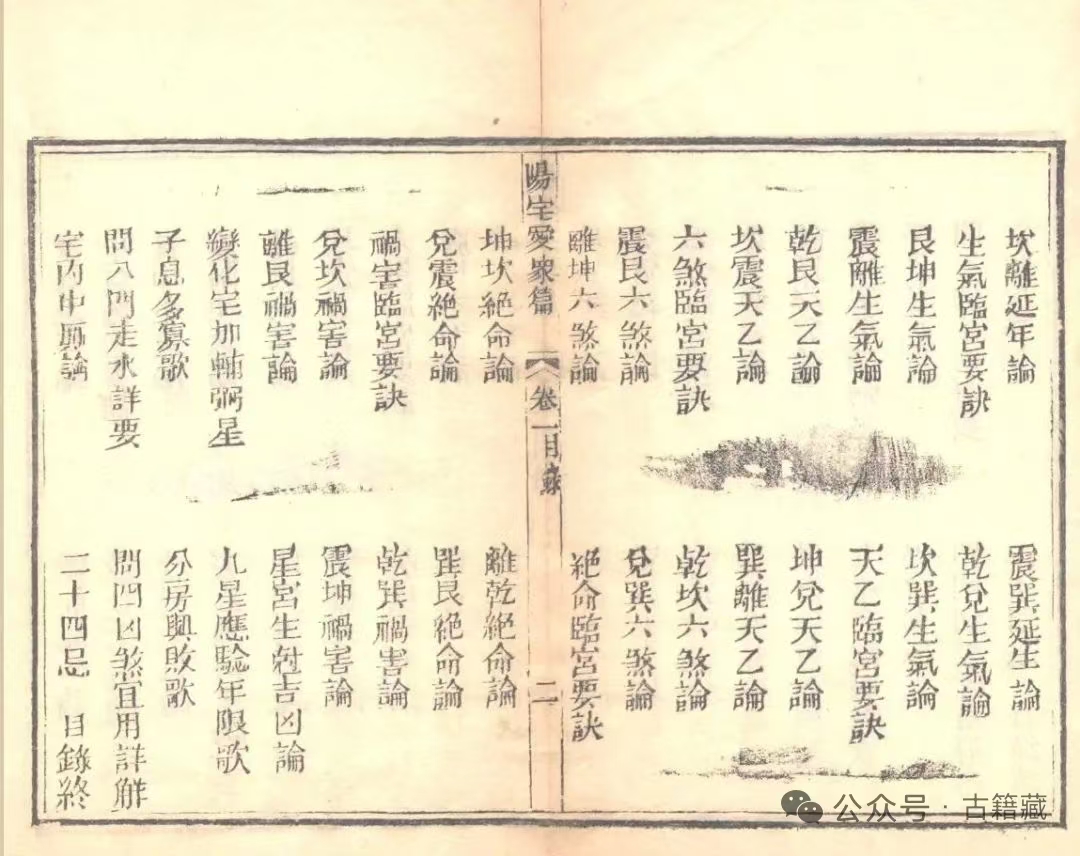 坎離延年論　震巽延生論
生氣臨宮要訣　乾兌生氣論
艮坤生氣論　坎巽生氣論
震離生氣論　天乙臨宮要訣
乾艮天乙論　坤兌天乙論
坎震天乙論　巽離天乙論
六煞臨宮要訣　乾坎六煞論
震艮六煞論　兌巽六煞論
離坤六煞論　絕命臨宮要訣
陽宅愛衆篇　卷一目錄　二
坤坎絕命論　離乾絕命論
兌震絕命論　巽艮絕命論
禍害臨宮要訣　乾巽禍害論
兌坎禍害論　震坤禍害論
離艮禍害論　星宮生尅吉凶論
變化宅加輔弼星　九星應驗年限歌
子息多寡歌　分房興敗歌
問八門走水詳要　問四凶煞宜用詳解
宅內中論　二十四忌　目錄終
公众号 · 古籍藏